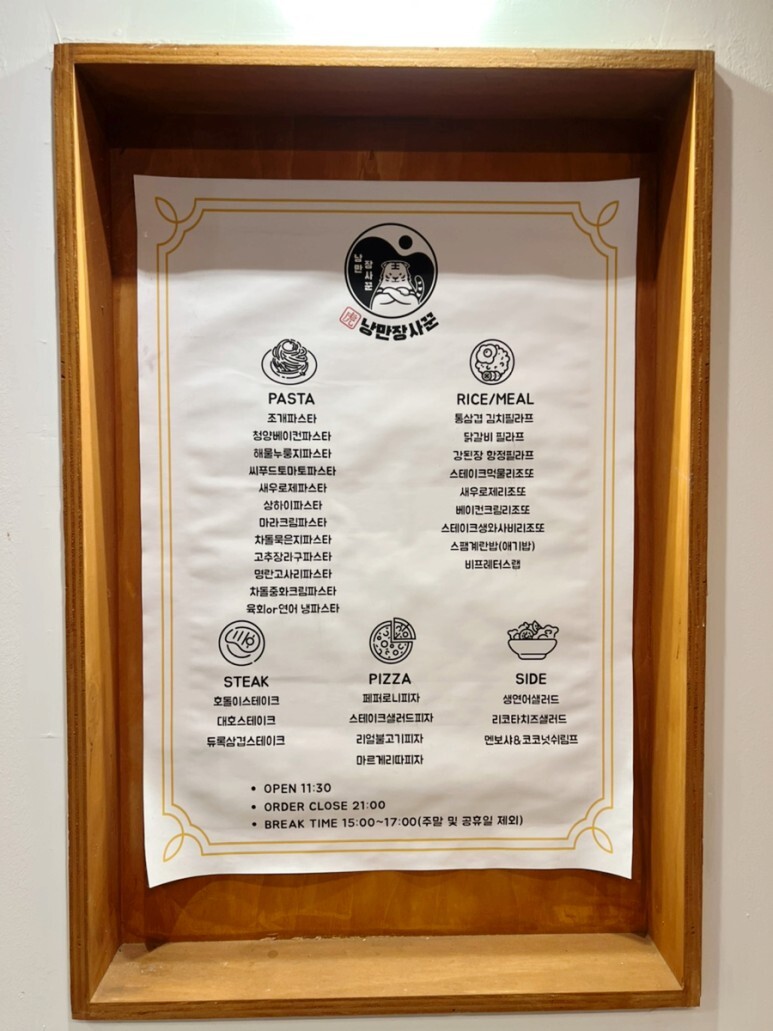 낭만
장사꾼
虎
낭만장사꾼
PASTA
조개파스타
청양베이컨파스타
해물누룽지파스타
씨푸드토마토파스타
새우로제파스타
상하이파스타
마라크림파스타
차돌묵은지파스타
고추장라구파스타
명란고사리파스타
차돌중화크림파스타
육회or연어 냉파스타
RICE/MEAL
통삼겹 김치필라프
닭갈비 필라프
강된장 항정필라프
스테이크먹물리조또
새우로제리조또
베이컨크림리조또
스테이크생와사비리조또
스팸계란밥(애기밥)
비프레터스랩
STEAK
호돌이스테이크
대호스테이크
듀록삼겹스테이크
PIZZA
페퍼로니피자
스테이크샐러드피자
리얼불고기피자
마르게리따피자
SIDE
생연어샐러드
리코타치즈샐러드
멘보샤&코코넛쉬림프
• OPEN 11:30
• ORDER CLOSE 21:00
• BREAK TIME 15:00~17:00(주말 및 공휴일 제외)